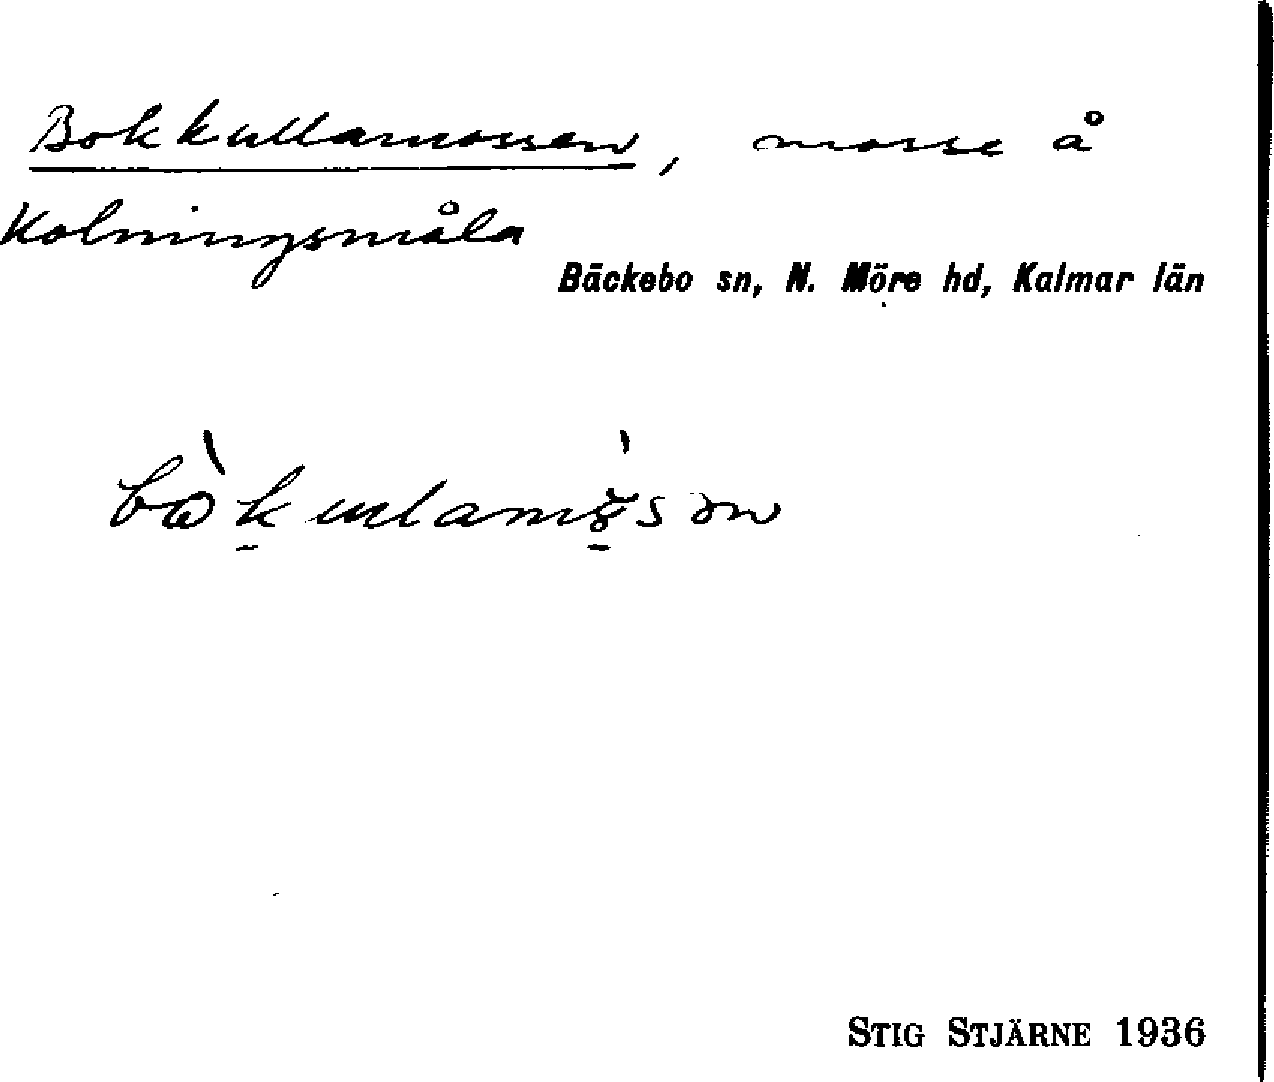 Bokkullamossen, mosse å
Kolningsmåla
Bäckebo sn, N. Möre hd, Kalmar län
STIG STJÄRNE 1936